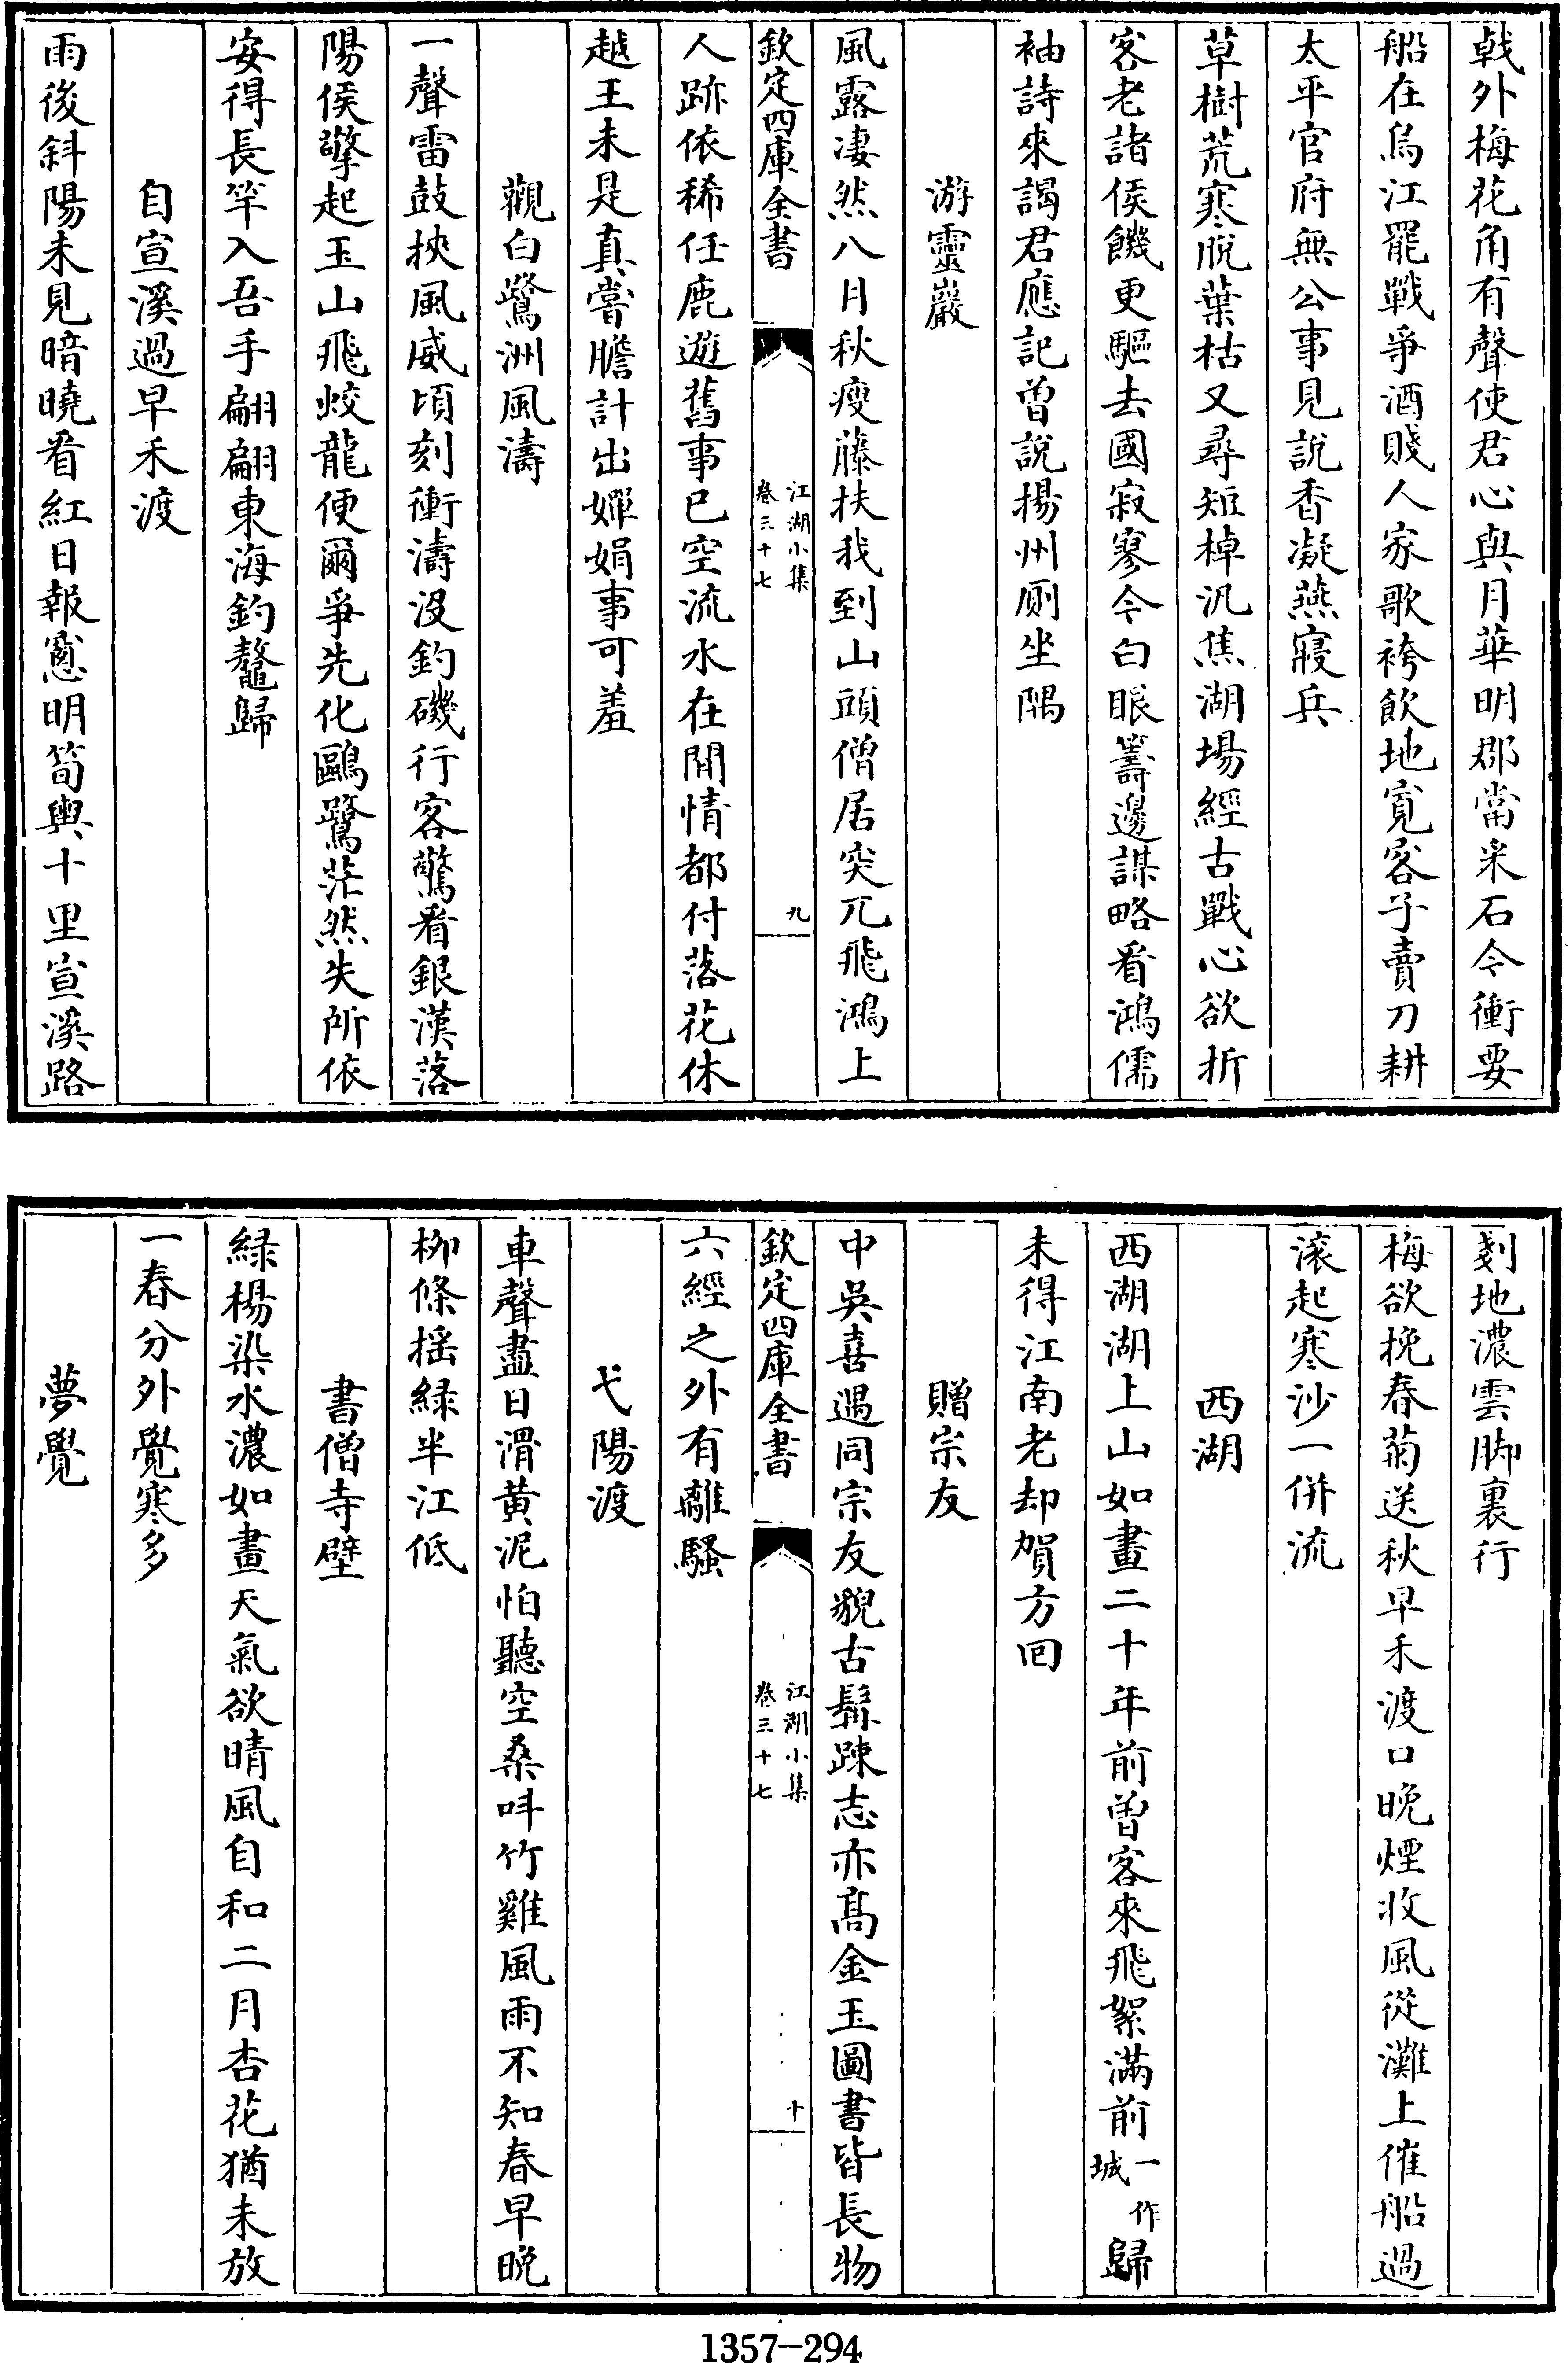 戟外梅花角有聲使君心與月華明郡當采石今衝要
船在烏江罷戰爭酒賤人家歌袴飲地寛客子賣刀耕
太平官府無公事見説香凝燕寢兵
草樹荒寒脱葉枯又尋短棹汎焦湖場經古戰心欲折
客老諸侯饑更驅去國寂寥今白眼籌邊謀略看鴻儒
袖詩來謁君應記曾說揚州厠坐隅
游靈巖
風露凄然八月秋瘦藤扶我到山頭僧居突兀飛鴻上
欽定四庫全書
江湖小集
卷三十七
九
人跡依稀任鹿遊舊事已空流水在閒情都付落花休
越王未是真嘗膽計出嬋娟事可羞
觀白鷺洲風濤
一聲雷鼓挾風威頃刻衝濤沒釣磯行客驚看銀漢落
陽侯擎起玉山飛蛟龍便爾爭先化鷗鷺茫然失所依
安得長竿入吾手翩翩東海釣鼇歸
自宣溪過早禾渡
雨後斜陽未見暗曉看紅日報窻明筍輿十里宣溪路
剗地濃雲脚裏行
梅欲挽春菊送秋早禾渡口晚煙收風從灘上催船過
滚起寒沙一併流
西湖
西湖湖上山如畫二十年前曾客來飛絮滿前一作城歸
未得江南老却賀方回
贈宗友
中吳喜遇同宗友貌古髯踈志亦髙金玉圖書皆長物
欽定四庫全書
江湖小集
卷三十七
十
六經之外有離騷
弋陽渡
車聲盡日滑黄泥怕聽空桑呌竹雞風雨不知春早晚
柳條揺緑半江低
書僧寺壁
緑楊染水濃如畫天氣欲晴風自和二月杏花猶未放
一春分外覺寒多
夢覺
1357-294